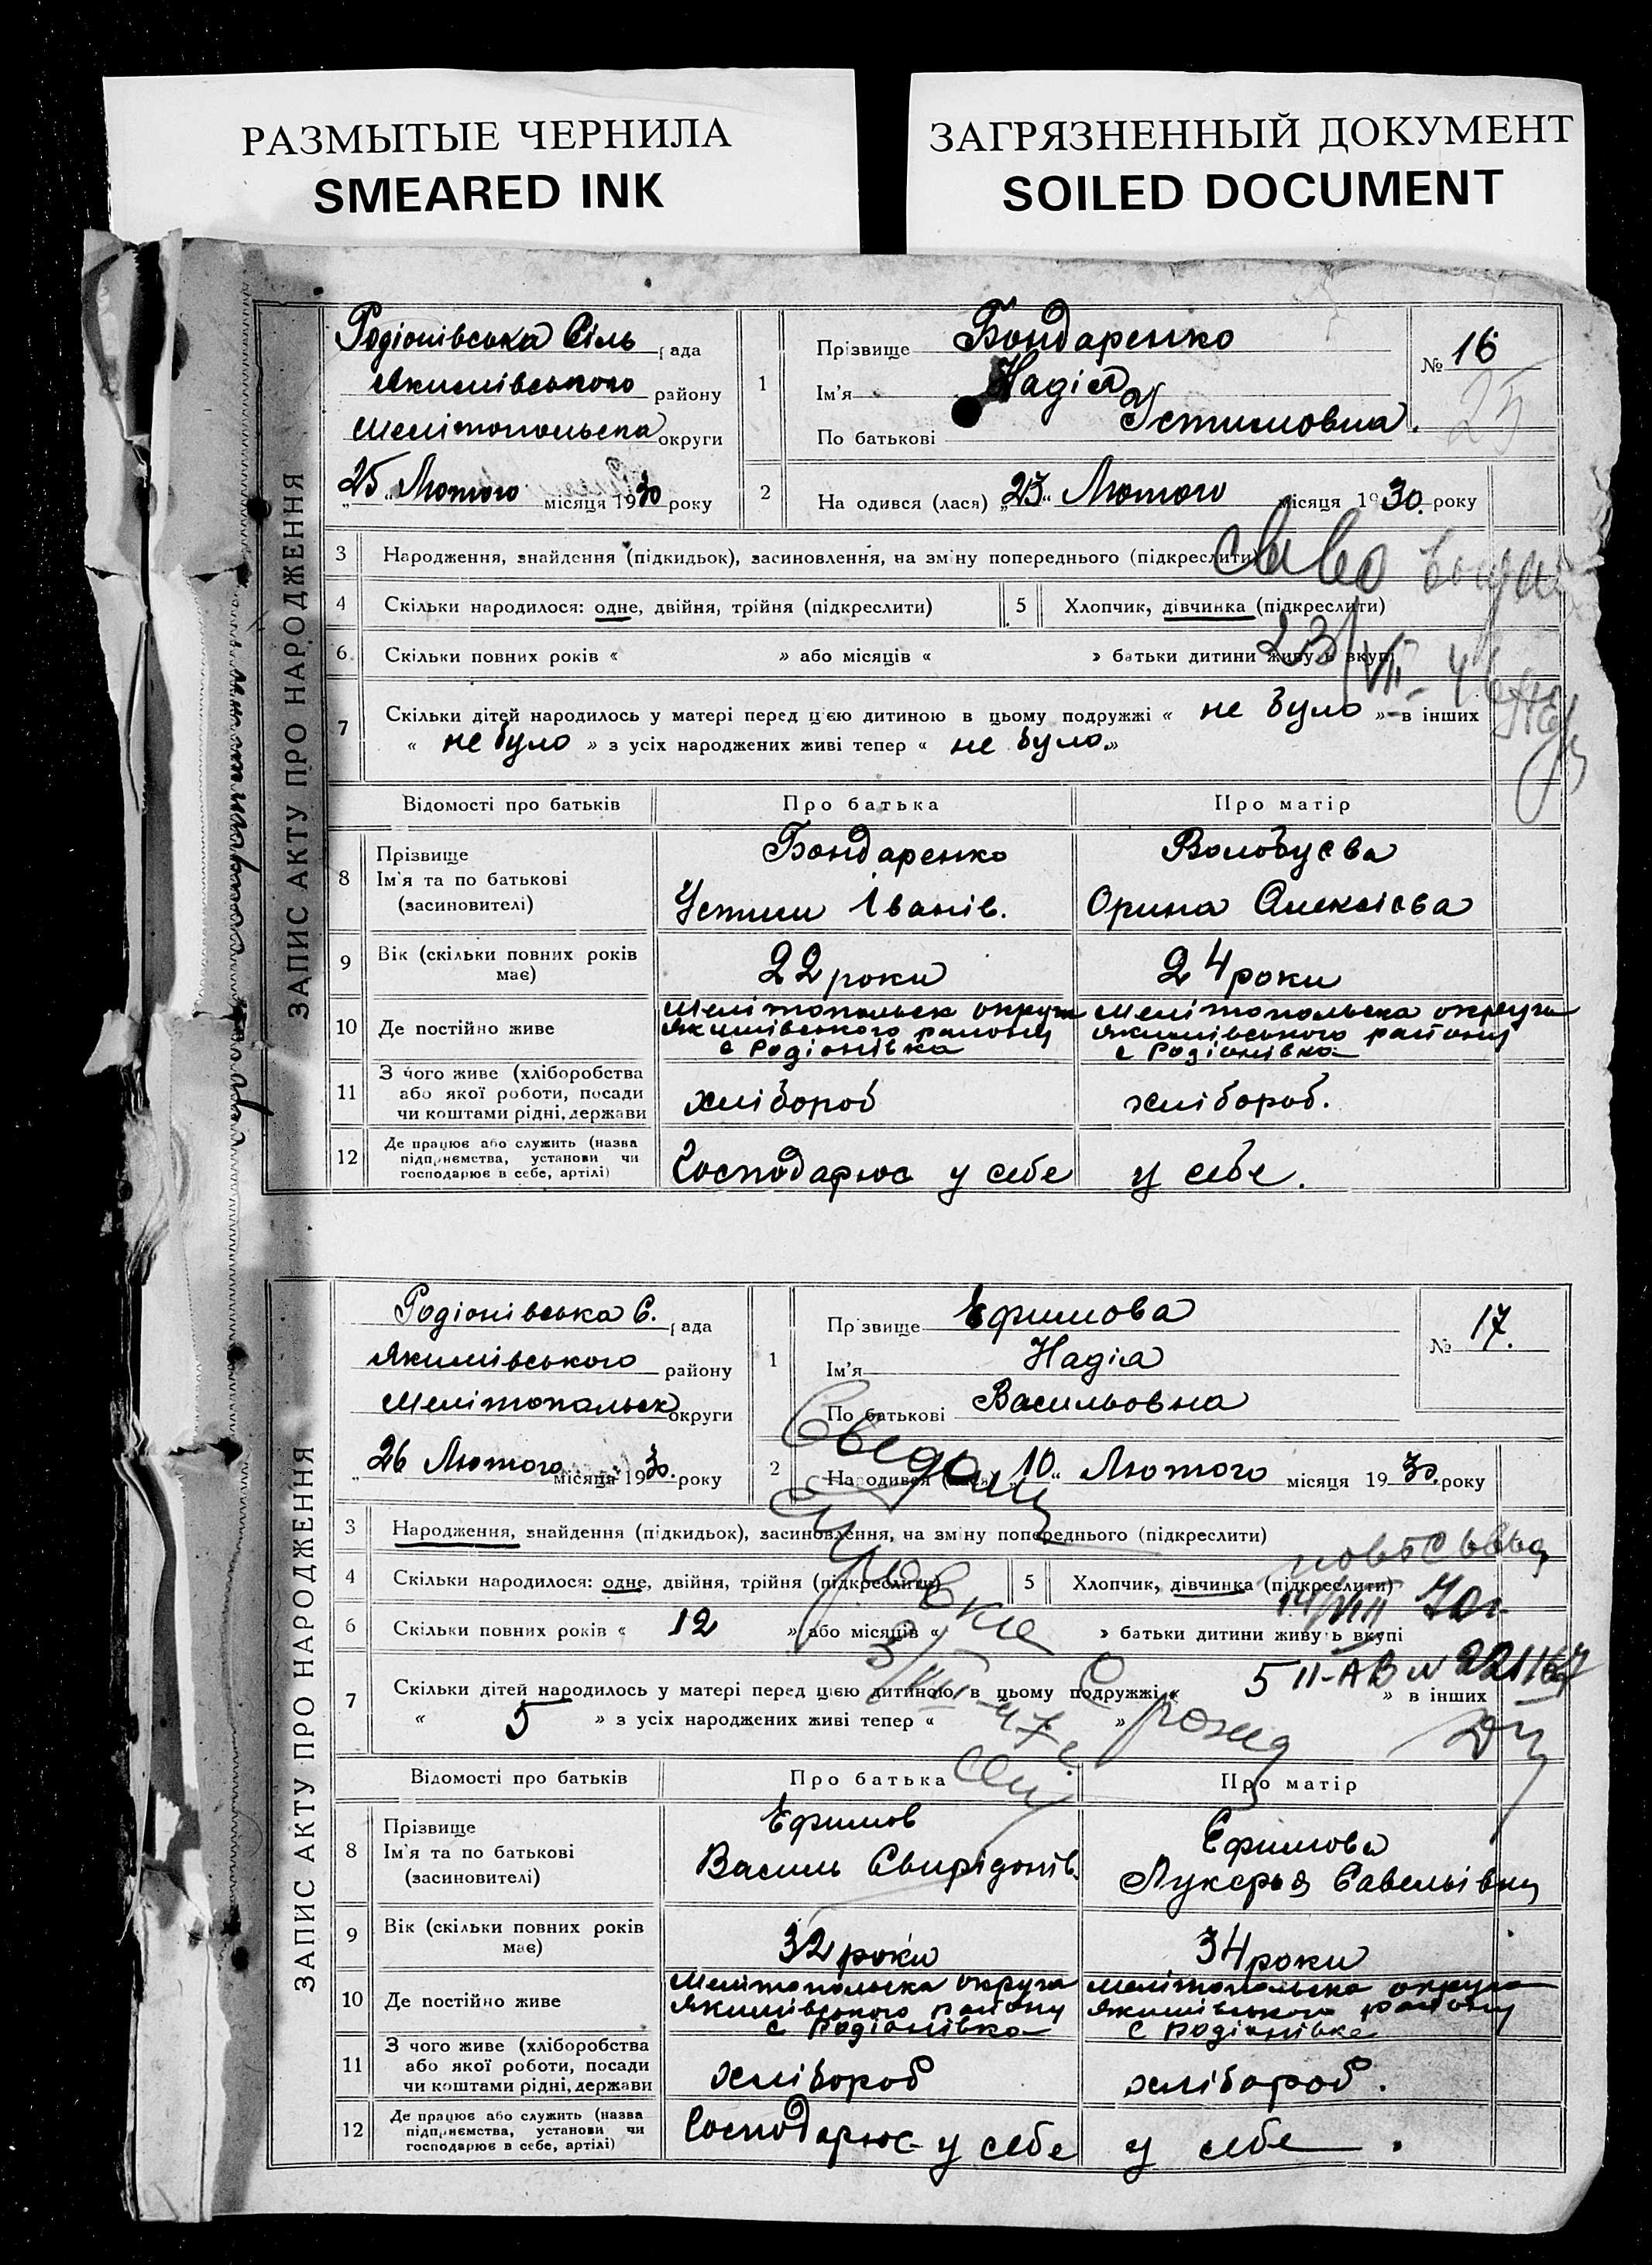 РАЗМЫТЫЕ ЧЕРНИЛА
SMEARED INK
ЗАГРЯЗНЕННЫЙ ДОКУМЕНТ
SOILED DOCUMENT
ЗАПИС АКТУ ПРО НАРОДЖЕННЯ
Родіонівська Сіль рада
Якимівського району
Мелітопольська округи
„25“ Лютого місяця 1930 року
1
Прізвище Бондаренко
Ім'я Надія
По батькові Устимовна.
№ 16
25
2 На одився (лася) „23“ Лютого місяця 1930. року
3 Народження, знайдення (підкидьок), засиновлення, на зміну попереднього (підкреслити)
4 Скільки народилося: одне, двійня, трійня (підкреслити)
5 Хлопчик, дівчинка (підкреслити)
23/VII-46
6 Скільки повних років « » або місяців « » батьки дитини живуть вкупі
7 Скільки дітей народилось у матері перед цією дитиною в цьому подружжі « не було » в інших
« не було » з усіх народжених живі тепер « не було.»
Відомості про батьків Про батька Про матір
8 Прізвище
Ім'я та по батькові
(засиновителі)
Бондаренко
Устим Іванів.
Волобуєва
Орина Алексієва
9 Вік (скільки повних років
має)
22 роки
24 роки
10 Де постійно живе
Мелітопольск округи
Якимівського району
с Родіонівка
Мелітопольска округи
Якимівського району
с Родіонівка
11 З чого живе (хліборобства
або якої роботи, посади
чи коштами рідні, держави
хлібороб
хлібороб.
12 Де працює або служить (назва
підприємства, установи чи
господарює в себе, артілі)
Господарює у себе
у себе.
ЗАПИС АКТУ ПРО НАРОДЖЕННЯ
Родіонівська С. рада
Якимівського району
Мелітопольск округи
„26 Лютого місяця 1930. року
1
Прізвище Ефимова
Ім'я Надія
По батькові Васильовна
№ 17.
2 Народився (лася) „10“ Лютого місяця 1930. року
3 Народження, знайдення (підкидьок), засиновлення, на зміну попереднього (підкреслити)
4 Скільки народилося: одне, двійня, трійня (підкреслити)
5 Хлопчик, дівчинка (підкреслити)
14/VIII 70г
6 Скільки повних років « 12 » або місяців « » батьки дитини живуть вкупі
II-АВ № 221167
7 Скільки дітей народилось у матері перед цією дитиною в цьому подружжі « 5 » в інших
« 5 » з усіх народжених живі тепер « »
Відомості про батьків Про батька Про матір
8 Прізвище
Ім'я та по батькові
(засиновителі)
Ефимов
Василь Свирідонів.
Ефимова
Лукерья Савельівна
9 Вік (скільки повних років
має)
32 роки
34 роки
10 Де постійно живе
Мелітопольска округи
Якимівського району
с Родіонівка
Мелітопольска округи
Якимівського району
с Родіонівка
11 З чого живе (хліборобства
або якої роботи, посади
чи коштами рідні, держави
хлібороб
хлібороб.
12 Де працює або служить (назва
підприємства, установи чи
господарює в себе, артілі)
Господарює у себе
у себе.